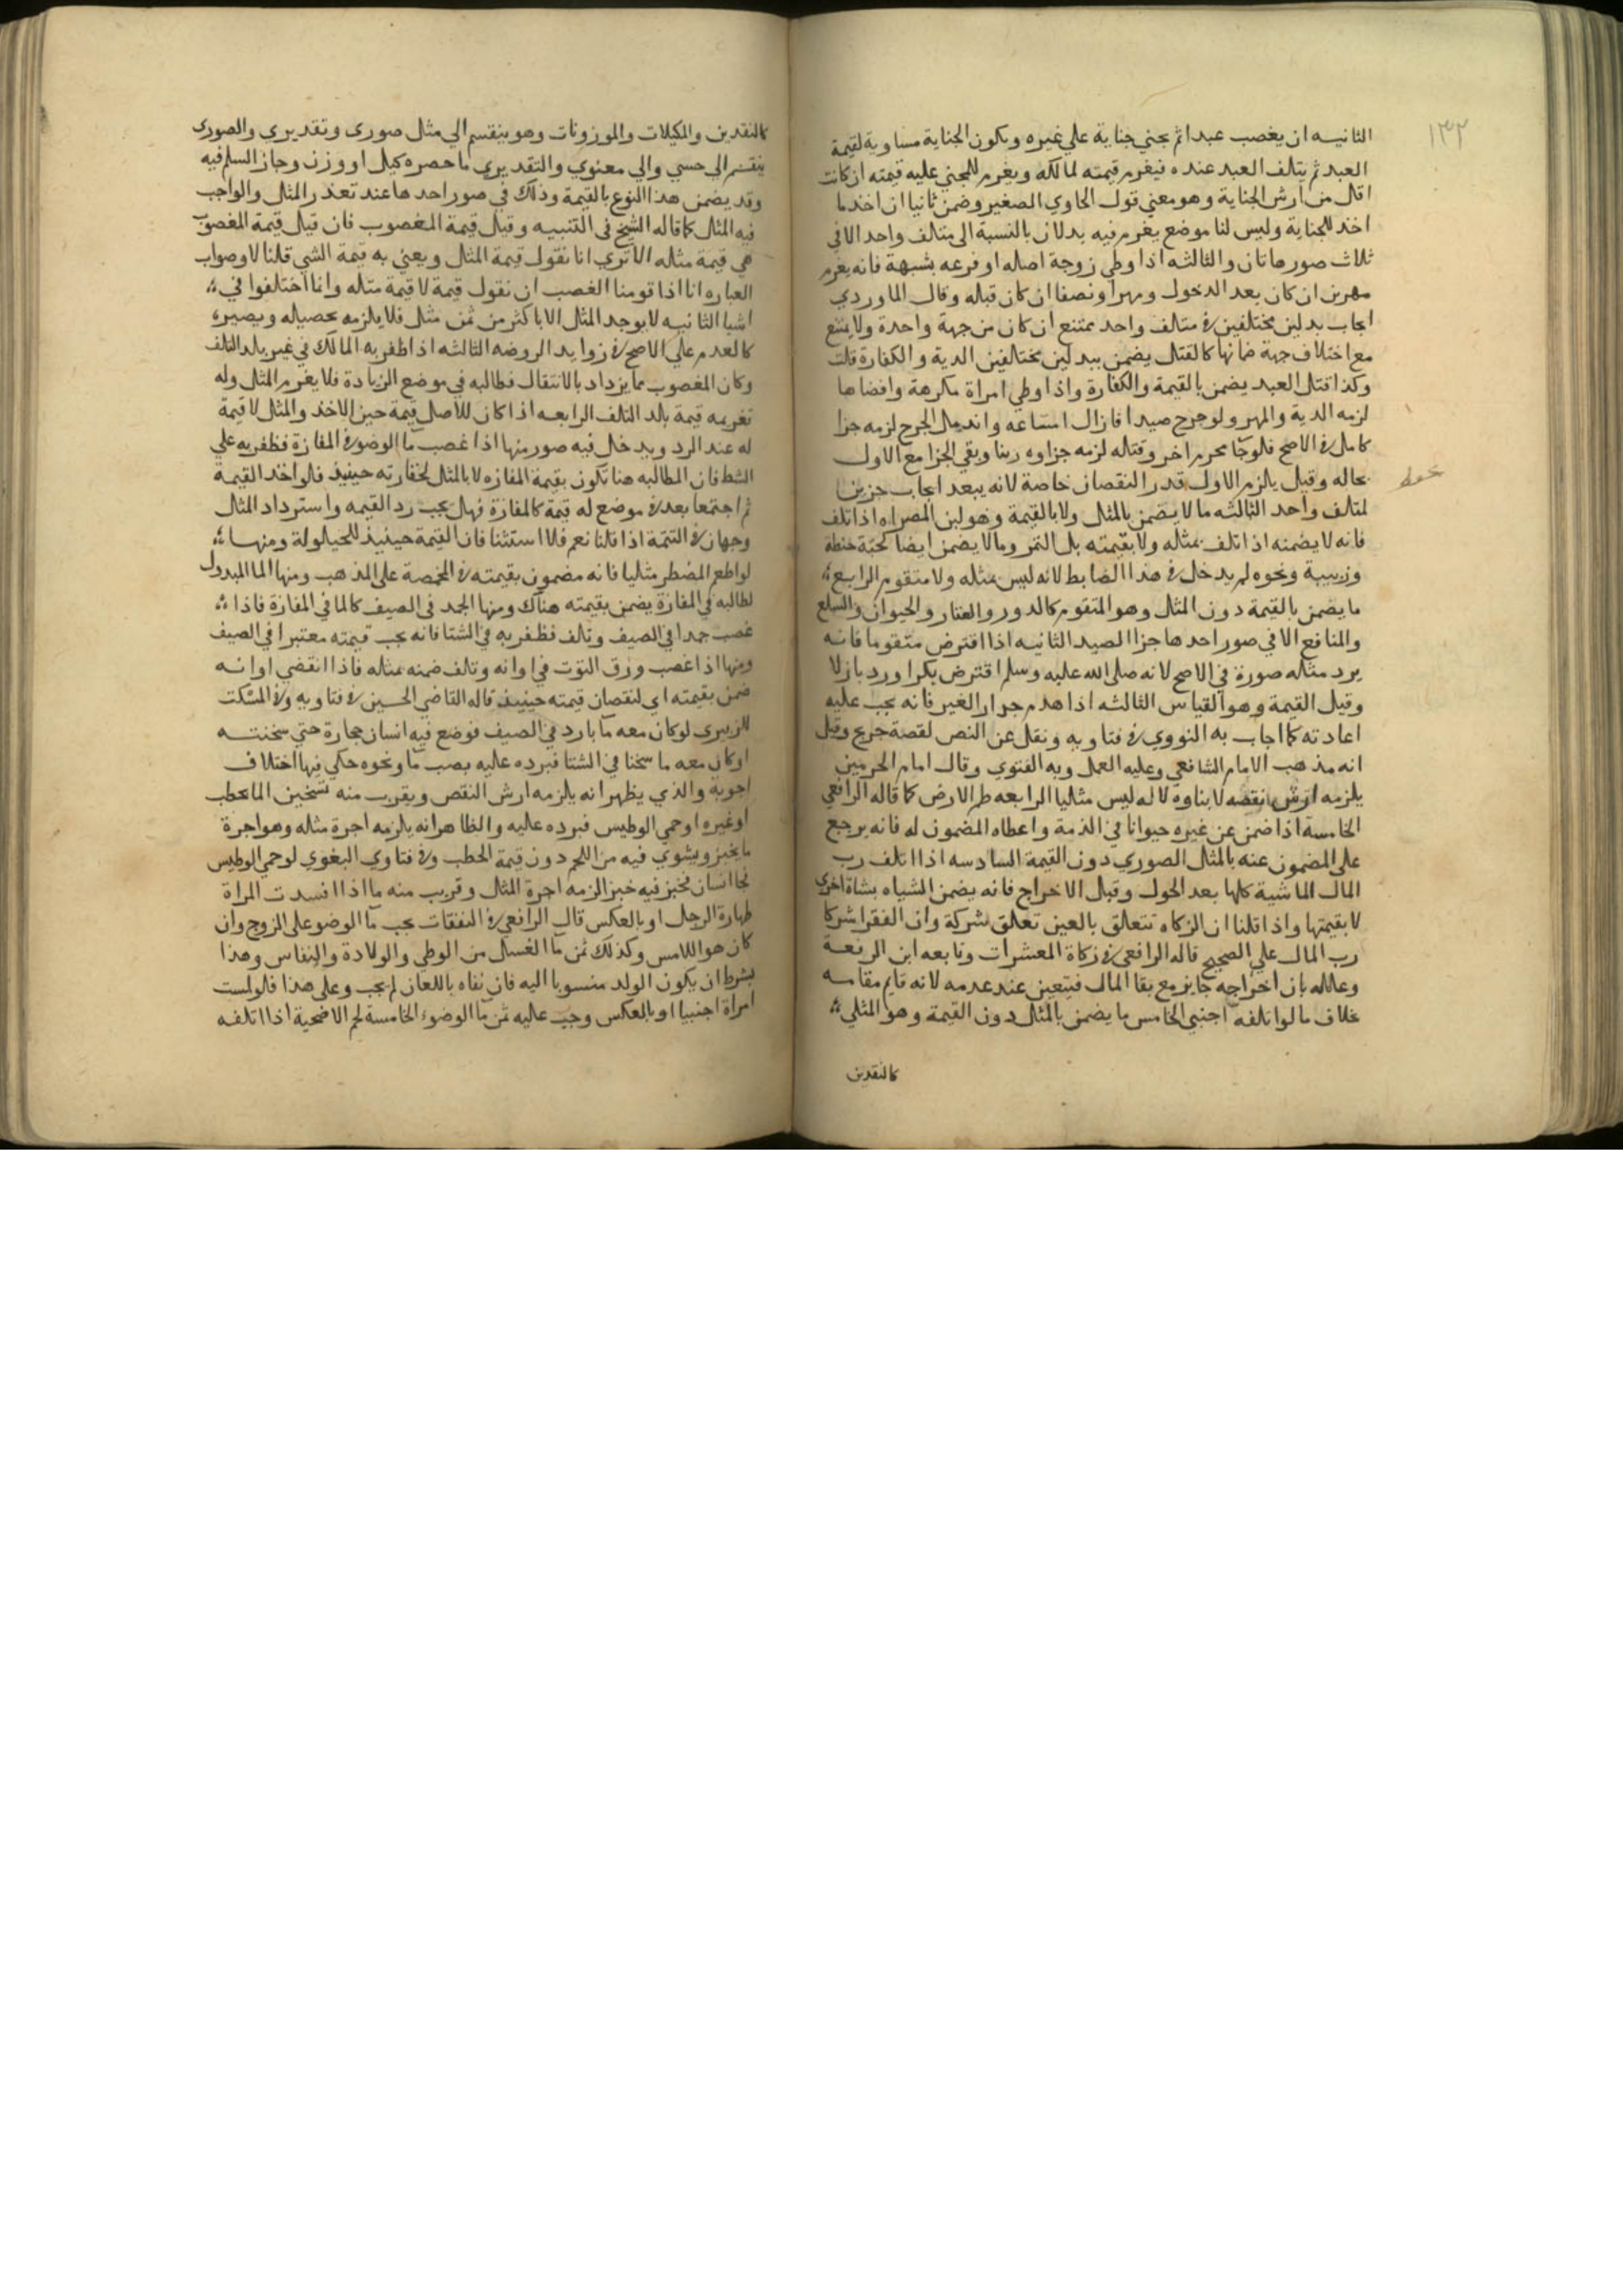 ١٣٢
الثانيه ان يغصب عبدا ثم يجني جناية علي غيره وتكون الجناية مساوية لقيمة
العبد ثم يتلف العبد عنده فيغرم قيمته لمالكه ويغرم للمجني عليه قيمته ان كانت
اقل من ارش الجناية وهو معني قول الحاوي الصغير وضمن ثانيا ان اخذ ما
اخذ للجناية وليس لنا موضع يغرم فيه بدلان بالنسبة الى متلف واحد الا في
ثلاث صور هاتان والثالثه اذا وطي زوجة اصله او فرعه بشبهة فانه يغرم
مهرين ان كان بعد الدخول ومهرا ونصفا ان كان قبله وقال الماوردي
ايجاب بدلين مختلفين في متلف واحد يمتنع ان كان من جهة واحدة ولا يمتنع
مع اختلاف جهة ضمانها كالقتل يضمن ببدلين مختلفين الدية والكفارة قلت
وكذا قتل العبد يضمن بالقيمة والكفارة واذا وطي امراة مكرهة وافضاها
لزمه الدية والمهر ولو جرح صيدا فازال امتناعه واندمال الجرح لزمه جزا
كامل في الاصح فلو جا محرم اخر وقتله لزمه جزاوه زمنا وبقي الجزا مع الاول
بحاله وقيل يلزم الاول قدر النقصان خاصة لانه يبعد ايجاب جزين
لمتلف واحد الثالثه ما لا يضمن بالمثل ولا بالقيمة وهو لبن المصراه اذا تلف
فانه لا يضمنه اذا تلف بمثله ولا بقيمته بل التمر ومما لا يضمن ايضا كحبة حنطة
وزبيبة ونحوه لم يدخل في هذا الضابط لانه ليس مثله ولا متقوم الرابع
ما يضمن بالقيمة دون المثل وهو المتقوم كالدور والعقار والحيوان والسلع
والمنافع الا في صور احدها جزا الصيد الثانيه اذا اقترض متقوما فانه
يرد مثله صورة في الاصح لانه صلى الله عليه وسلم اقترض بكرا ورد بازلا
وقيل القيمة وهو القياس الثالثه اذا هدم جدار الغير فانه يجب عليه
اعادته كما اجاب به النووي في فتاويه ونقل عن النص لقصة جريج وقيل
انه مذهب الامام الشافعي وعليه العمل وبه الفتوي وقال امام الحرمين
يلزمه ارش نقصه لا بناوه لانه ليس مثليا الرابعه طم الارض كما قاله الرافعي
الخامسة اذا ضمن عن غيره حيوانا في الذمة واعطاه المضمون له فانه يرجع
على المضمون عنه بالمثل الصوري دون القيمة السادسه اذا اتلف رب
المال الماشية كلها بعد الحول وقبل الاخراج فانه يضمن الشياه بشاة اخرى
لا بقيمتها واذا قلنا ان الزكاه تتعلق بالعين تعلق شركة وان الفقرا شركا
رب المال علي الصحيح قاله الرافعي في زكاة المعشرات وتابعه ابن الرفعة
وعلله بان اخراجه جايز مع بقا المال فيتعين عند عدمه لانه قايم مقامه
بخلاف ما لو اتلفه اجنبي الخامس ما يضمن بالمثل دون القيمة وهو المثلي
كالنقدين
كالنقدين والمكيلات والموزونات وهو ينقسم الي مثل صوري وتقديري والصوري
ينقسم الي حسي والي معنوي والتقديري ما حصره كيل او وزن وجاز السلم فيه
وقد يضمن هذا النوع بالقيمة وذلك في صور احدها عند تعذر المثل والواجب
فيه المثل كما قاله الشيخ في التنبيه وقيل قيمة المغصوب فان قيل قيمة المغصوب
هي قيمة مثله الا تري انا نقول قيمة المثل ويعني به قيمة الشي قلنا لا وصواب
العباره انا اذا قومنا الغصب ان نقول قيمة لا قيمة مثله وانما اختلفوا في
اشيا الثانيه لا يوجد المثل الا باكثر من ثمن مثل فلا يلزمه تحصيله ويصير
كالعدم علي الاصح في زوايد الروضه الثالثه اذا ظفر به المالك في غير بلد التلف
وكان المغصوب مما يزداد بالانتقال فطالبه في موضع الزيادة فلا يغرم المثل وله
تغريمه قيمة بلد التلف الرابعه اذا كان للاصل قيمة حين الاخذ والمثل لا قيمة
له عند الرد ويدخل فيه صور منها اذا غصب ما الوضو في المفازة فظفر به علي
الشط فان المطالبه هنا تكون بقيمة المفازه لا بالمثل لحقارته حينيذ فلو اخذ القيمة
ثم اجتمعا بعد في موضع له قيمة كالمفازة فهل يجب رد القيمه واسترداد المثل
وجهان في التتمة اذا قلنا نعم فلا استثنا فان القيمة حينيذ للحيلولة ومنها
لو اطعم المضطر مثليا فانه مضمون بقيمته في المخمصة على المذهب ومنها الما المبدول
لطالبه في المفازة يضمن بقيمته هناك ومنها الجمد في الصيف كالما في المفازة فاذا
غصب جمدا في الصيف وتلف فظفر به في الشتا فانه يجب قيمته معتبرا في الصيف
ومنها اذا غصب ورق التوت في اوانه وتلف ضمنه بمثله فاذا انقضي اوانه
ضمن بقيمته اي لنقصان قيمته حينيذ قاله القاضي الحسين في فتاويه وفي المسكت
للزبيري لو كان معه ما بارد في الصيف فوضع فيه انسان حجارة حتي سخنته
او كان معه ما سخنا في الشتا فبرده عليه بصب ما ونحوه حكي فيها اختلاف
اجوبة والذي يظهر انه يلزمه ارش النقص ويقرب منه تسخين الما بحطب
او غيره او حمي الوطيس فبرده عليه والظاهر انه يلزمه اجرة مثله وهو اجرة
ما يخبز ويشوي فيه من اللحم دون قيمة الحطب وفي فتاوي البغوي لو حمي الوطيس
فجا انسان فخبز فيه خبزا لزمه اجرة المثل وقريب منه ما اذا افسدت المراة
طهارة الرجل او بالعكس قال الرافعي في النفقات يجب ما الوضو على الزوج وان
كان هو اللامس وكذلك ثمن ما الغسل من الوطي والولادة والنفاس وهذا
بشرط ان يكون الولد منسوبا اليه فان نفاه باللعان لم يجب وعلى هذا فلو لمست
امراة اجنبيا او بالعكس وجب عليه ثمن ما الوضوء الخامسة لحم الاضحية اذا اتلفه